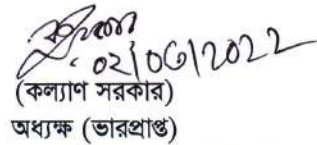 02/06/2022
(কল্যাণ সরকার)
অধ্যক্ষ (ভারপ্রাপ্ত)